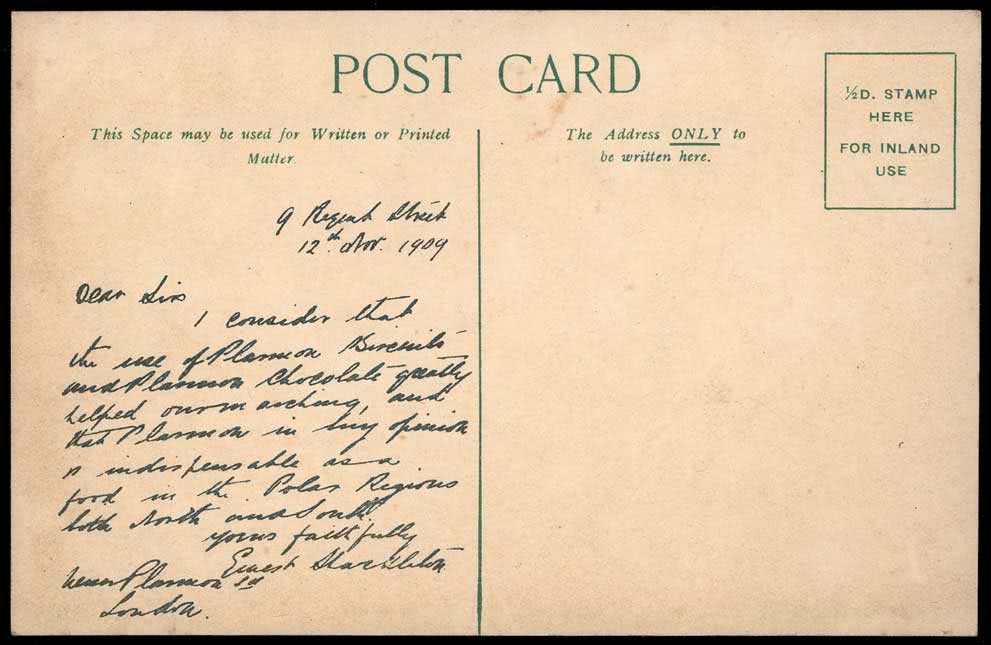 POST CARD
½D. STAMP
HERE
FOR INLAND
USE
This Space may be used for Written or Printed
Matter.
The Address ONLY to
be written here.
9 Regent Street
12th Nov. 1909
Dear Sirs
I consider that
the use of Plasmon Biscuits
and Plasmon Chocolate greatly
helped our marching, and
that Plasmon in my opinion
is indispensable as a
food in the Polar Regions
both North and South.
yours faithfully
Ernest Shackleton
Plasmon Ld
London.